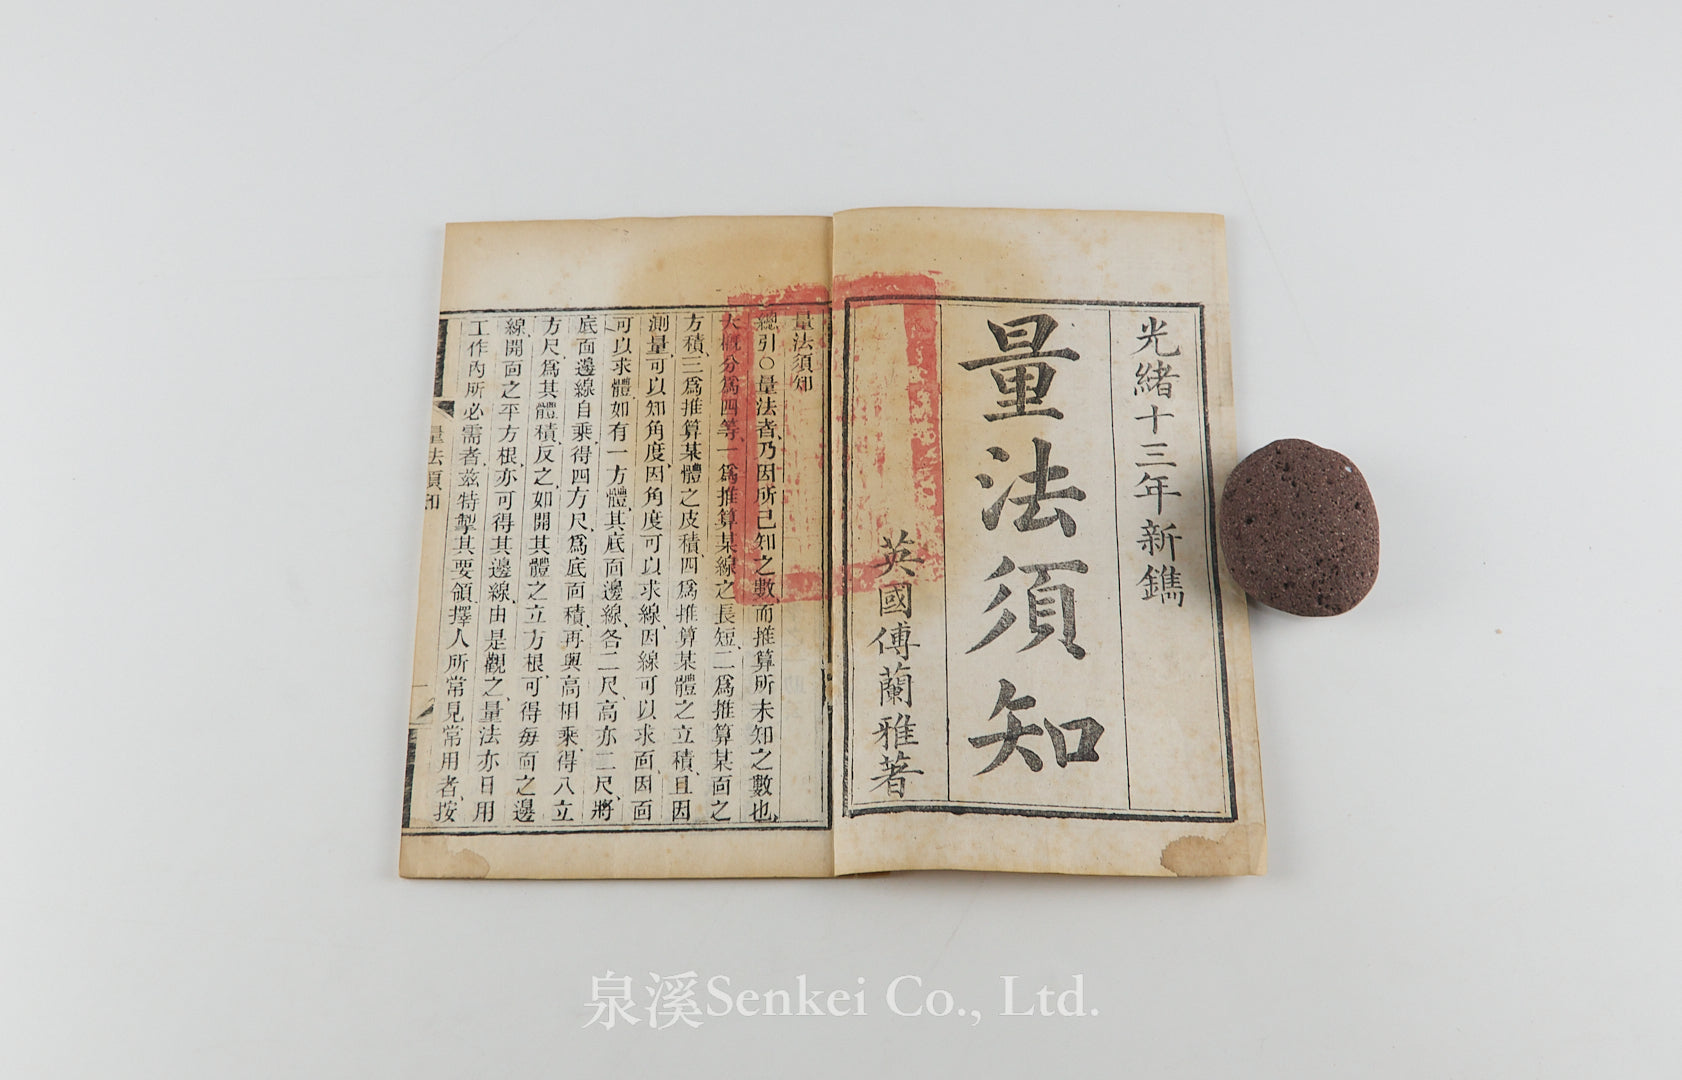 光緒十三年新鐫
量法須知
英國傅蘭雅著
量法須知
總引○量法者、乃因所已知之數、而推算所未知之數也、
大概分爲四等、一爲推算某線之長短、二爲推算某面之
方積、三爲推算某體之皮積、四爲推算某體之立積、且因
測量可以知角度、因角度可以求線、因線可以求面、因面
可以求體、如有一方體、其底面邊線、各二尺、高亦二尺、將
底面邊線自乘、得四方尺、爲底面積、再與高相乘、得八立
方尺、爲其體積、反之、如開其體之立方根、可得每面之邊
線、開面之平方根、亦可得其邊線、由是觀之、量法亦日用
工作內所必需者、茲特掣其要領、擇人所常見常用者、按
量法須知
一
泉溪Senkei Co., Ltd.